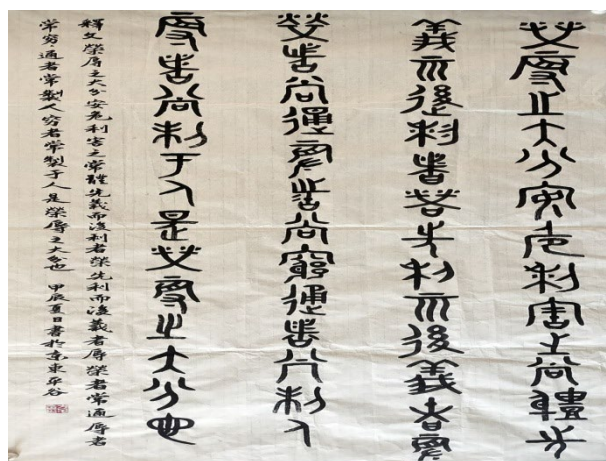 榮辱之大分安危利害之常體先
義而後利者榮先利而後義者辱
榮者常通辱者常窮通者常制人
窮者常制于人是榮辱之大分也
釋文 榮辱之大分安危利害之常體先義而後利者榮先利而後義者辱榮者常通辱者
常窮通者常製人窮者常製于人是榮辱之大分也 甲辰夏日書於京東平谷